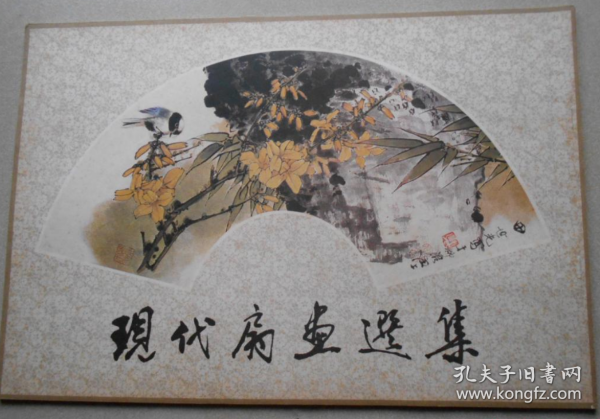 現代扇画選集
孔夫子旧書网
www.kongfz.com